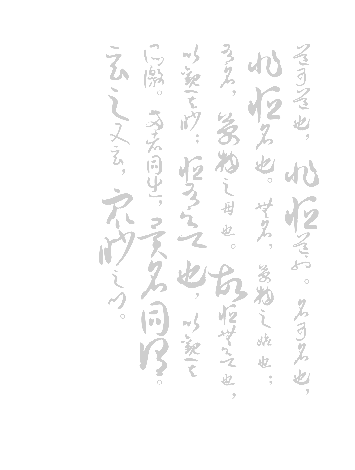 道可道也,非恒道也。名可名也,
非恒名也。無名,萬物之始也;
有名,萬物之母也。故恒無欲也,
以觀其眇;恒有欲也,以觀其
所徼。兩者同出,異名同謂。
玄之又玄,眾眇之門。